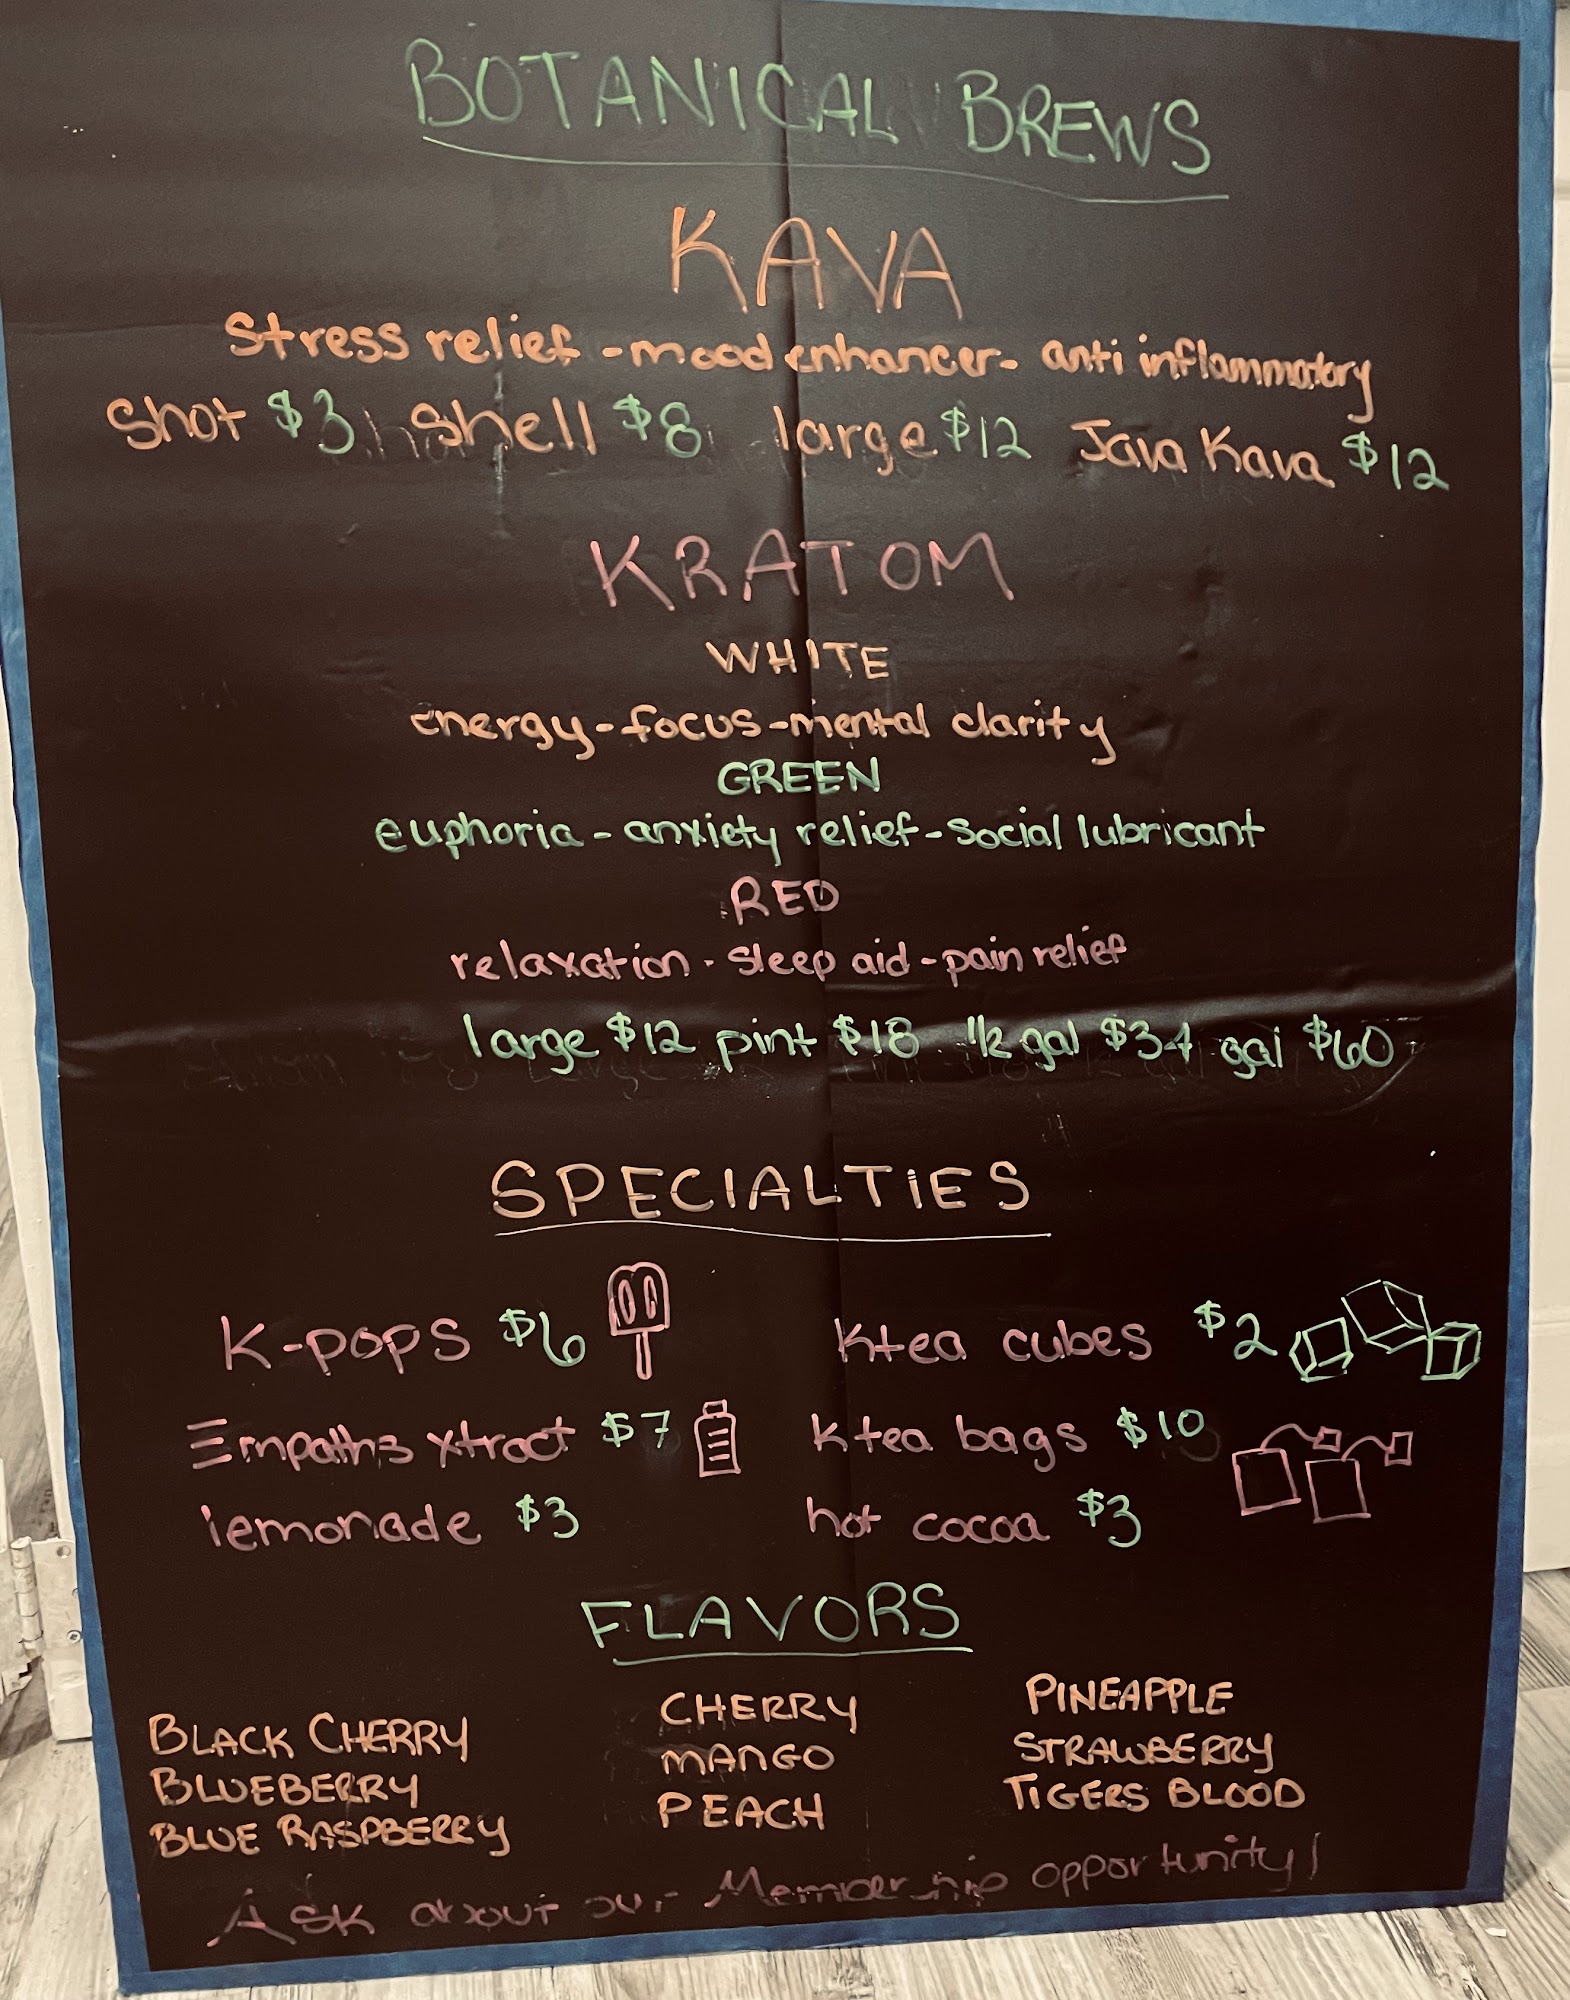 BOTANICAL BREWS
KAVA
Stress relief - mood enhancer - anti inflammatory
Shot $3 Shell $8 large $12 Java Kava $12
KRATOM
WHITE
energy - focus - mental clarity
GREEN
euphoria - anxiety relief - social lubricant
RED
relaxation - sleep aid - pain relief
large $12 pint $18 1/2 gal $34 gal $60
SPECIALTIES
K-pops $6 Ktea cubes $2
Empaths xtract $7 Ktea bags $10
lemonade $3 hot cocoa $3
FLAVORS
BLACK CHERRY CHERRY PINEAPPLE
BLUEBERRY MANGO STRAWBERRY
BLUE RASPBERRY PEACH TIGERS BLOOD
Ask about our Membership opportunity!